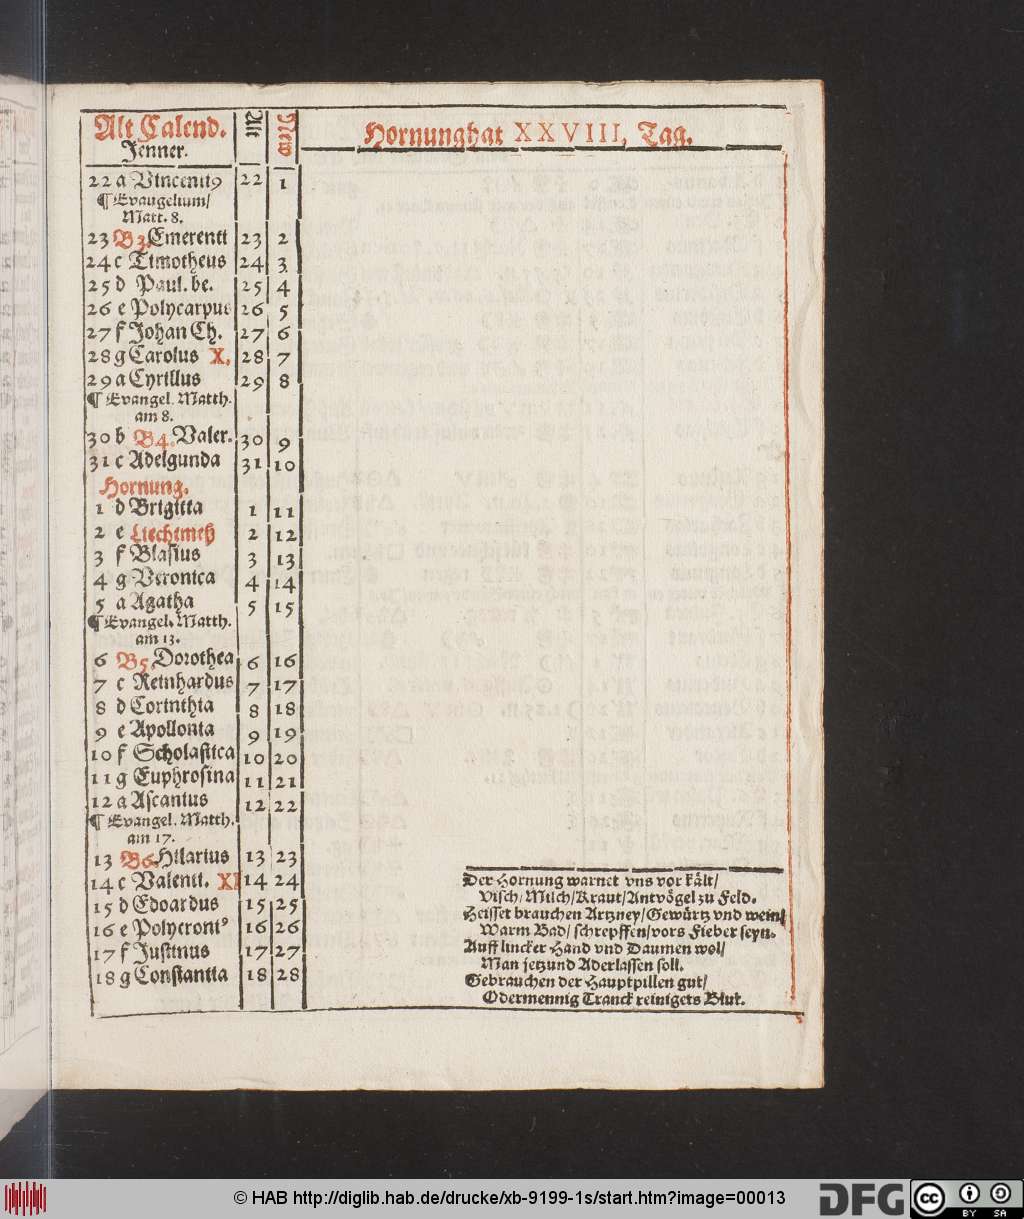 Alt Calend.
Jenner.
Alt
New
Hornung hat XXVIII, Tag.
22 a Vincentiꝰ 22 1
¶ Evangelium/
Matt. 8.
23 B3. Emerenti 23 2
24 c Timotheus 24 3
25 d Paul. be. 25 4
26 e Polycarpus 26 5
27 f Johan Ch. 27 6
28 g Carolus X. 28 7
29 a Cyrillus 29 8
¶ Evangel. Matth.
am 8.
30 b B4. Valer. 30 9
31 c Adelgunda 31 10
Hornung.
1 d Brigitta 1 11
2 e Liechtmeß 2 12
3 f Blasius 3 13
4 g Veronica 4 14
5 a Agatha 5 15
¶ Evangel. Matth.
am 13.
6 B5. Dorothea 6 16
7 c Reinhardus 7 17
8 d Corinthia 8 18
9 e Apollonia 9 19
10 f Scholastica 10 20
11 g Euphrosina 11 21
12 a Ascanius 12 22
¶ Evangel. Matth.
am 17.
13 B6. Hilarius 13 23
14 c Valenti. XI 14 24
15 d Edoardus 15 25
16 e Polycroniꝰ 16 26
17 f Justinus 17 27
18 g Constantia 18 28
Der Hornung warnet vns vor kält/
Visch/ Milch/ Kraut/ Antvögel zu Feld.
Heisset brauchen Artzney/ Gewürtz vnd wein/
Warm Bad/ schrepffen/ vors Fieber seyn.
Auff lincker Hand vnd Daumen wol/
Man jetzund Aderlassen soll.
Gebrauchen der Hauptpillen gut/
Odermennig Tranck reinigets Blut.
© HAB http://diglib.hab.de/drucke/xb-9199-1s/start.htm?image=00013
DFG
cc BY SA